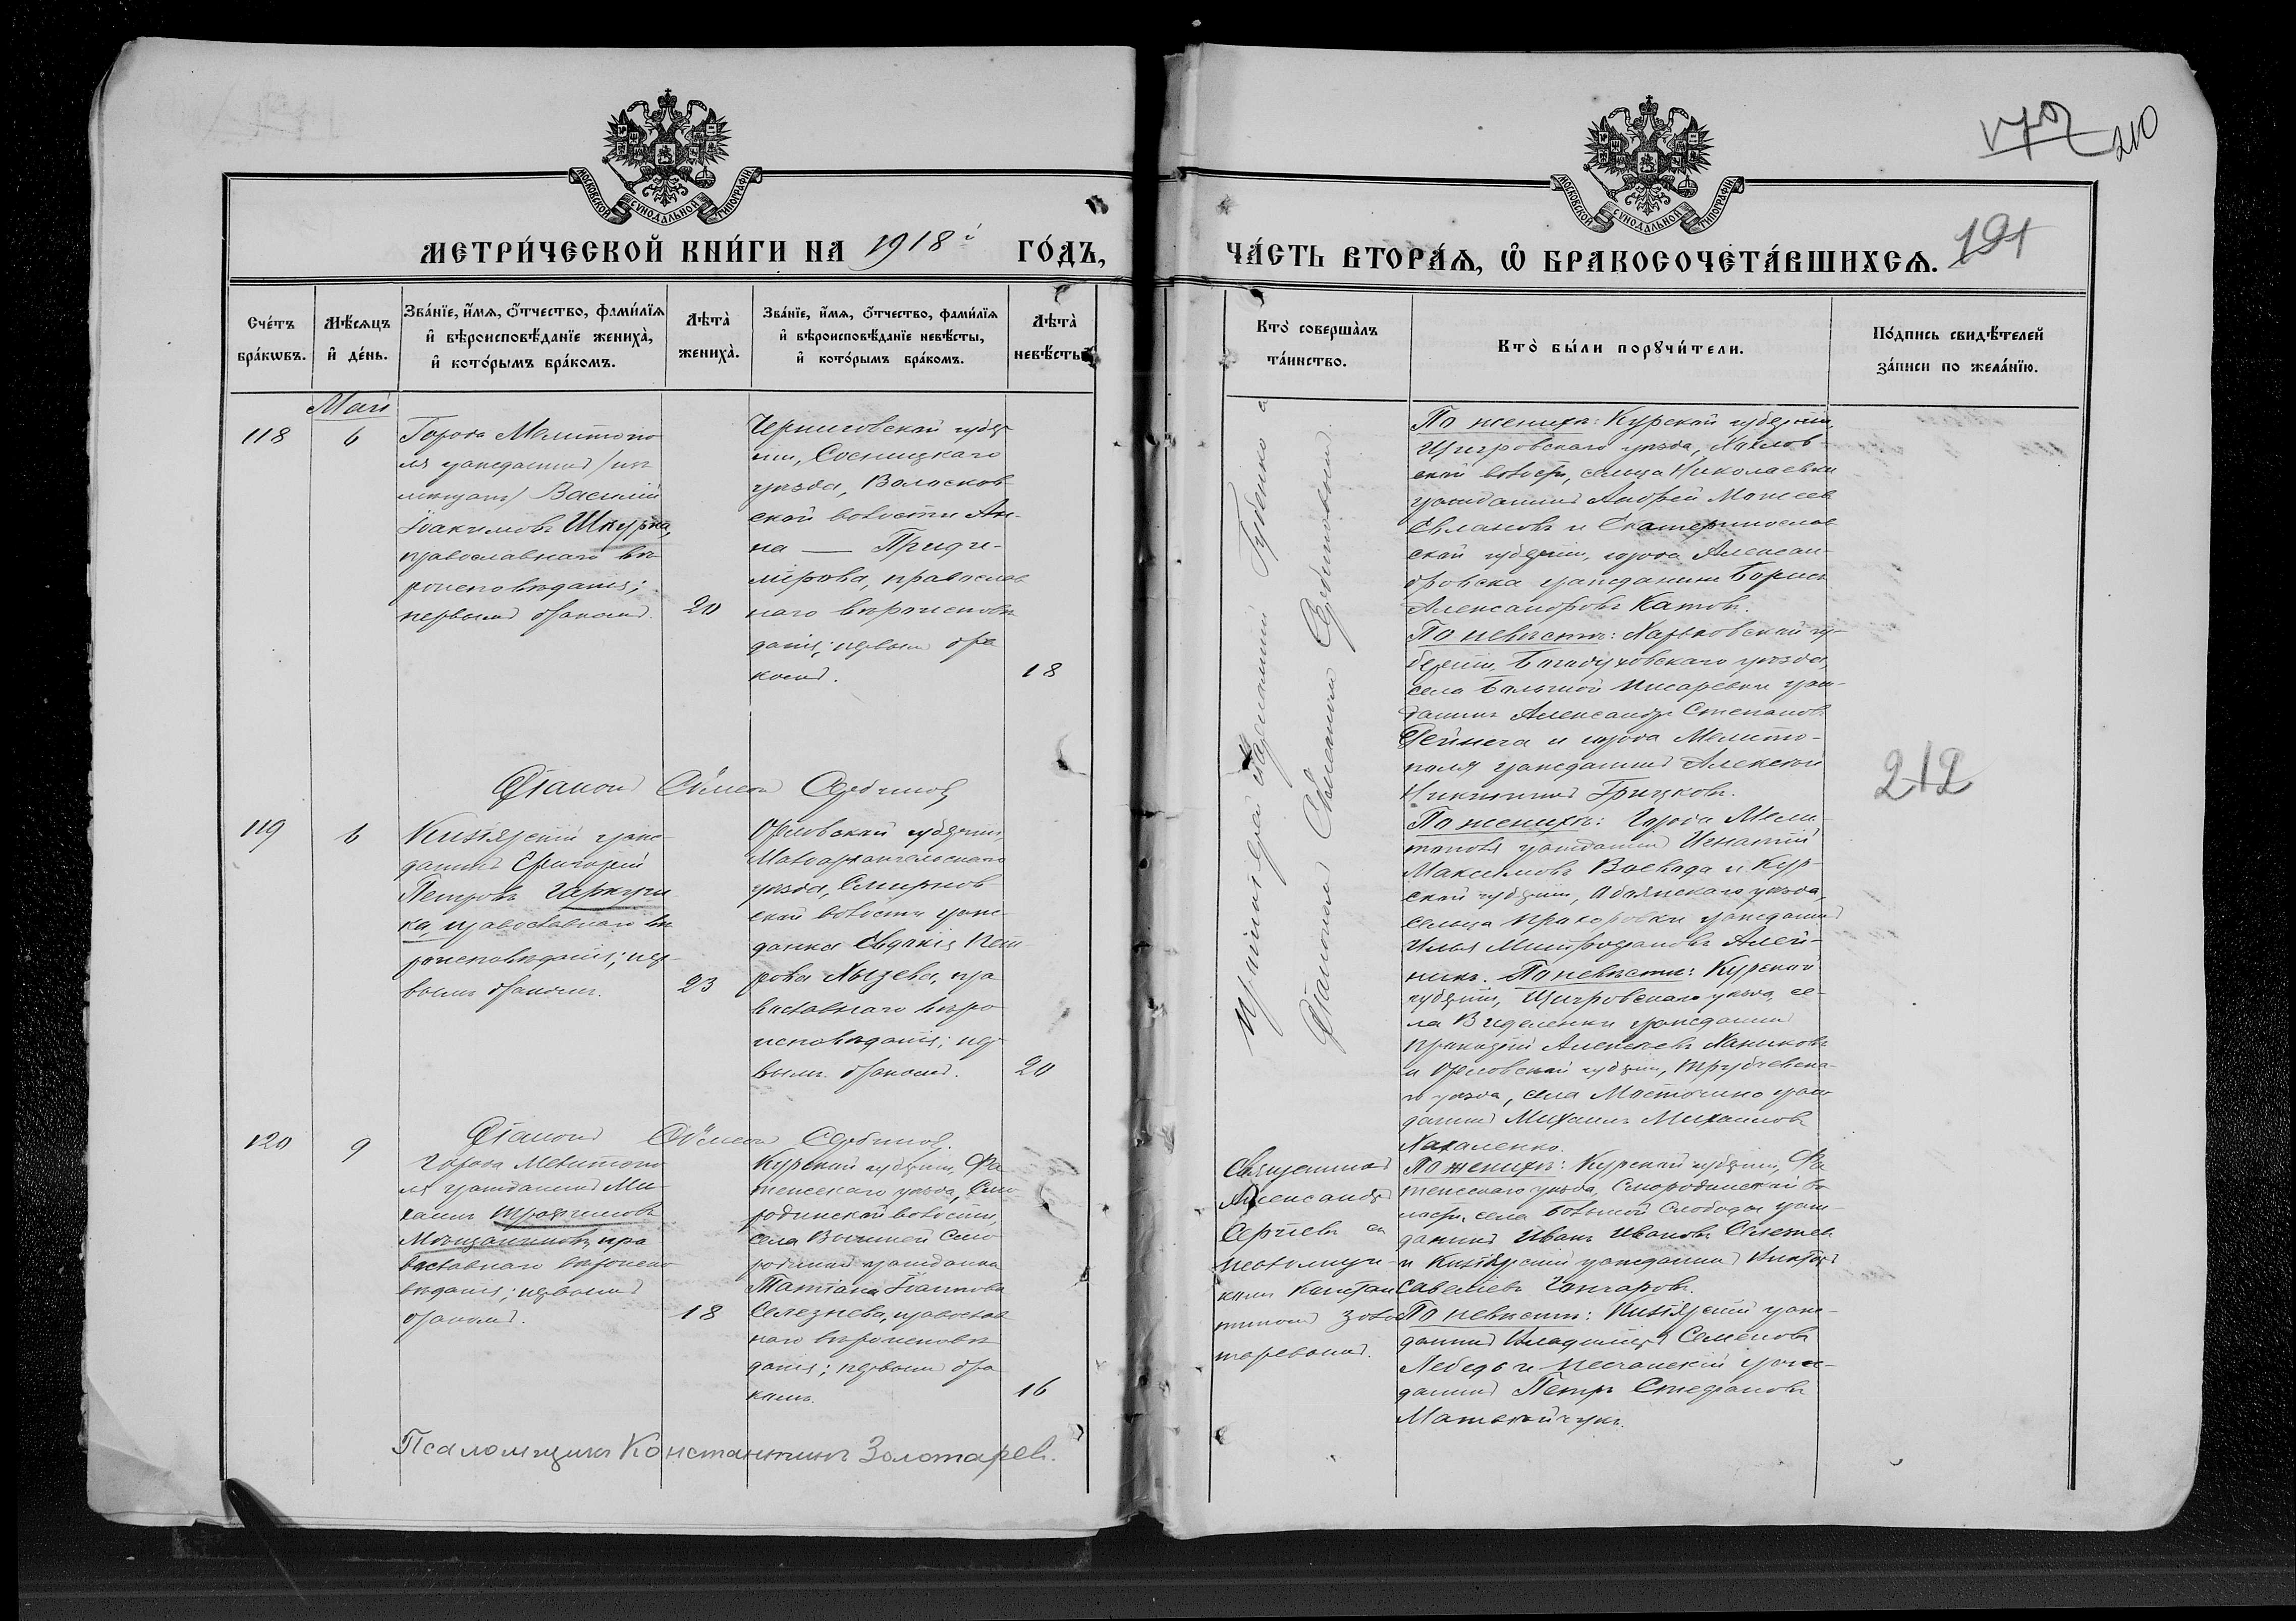 МОСКОВСКОЙ СѴНОДАЛЬНОЙ ТИПОГРАФІИ
МЕТРИ́ЧЕСКОЙ КНИ́ГИ НА 1918 й ГО́ДЪ,
Сче́тъ бра́кѡвъ.
Мѣ́сяцъ и҆ де́нь.
Зва́нїе, и҆́мѧ, ѻ҆́тчество, фами́лїѧ и҆ вѣроисповѣ́данїе жениха̀, и҆ кото́рымъ бра́комъ.
Лѣ́та̀ жениха̀.
Зва́нїе, и҆́мѧ, ѻ҆́тчество, фами́лїѧ и҆ вѣроисповѣ́данїе невѣ́сты, и҆ кото́рымъ бра́комъ.
Лѣ́та̀ невѣ́сты.
Май
118
6
Города Мелитопо
ля гражданинъ /изъ
мещанъ/ Василій
Іоакимовъ Шкурка,
православнаго вѣ
роисповѣданія;
первымъ бракомъ.
20
Черниговской губер
ніи, Сосницкаго
уѣзда, Волосков
ской волости Ан-
на —
православ
наго вѣроисповѣ
данія; первымъ бра
комъ.
18
Діаконъ Сѵмеонъ Сербиновъ
119
6
Кизіярскій граж
данинъ Григорій
Петровъ Гаркуш
ка, православнаго вѣ
роисповѣданія; пер-
вымъ бракомъ.
23
Орловской губерніи,
Малоархангельскаго
уѣзда, Смирнов
ской волости граж-
данка Евдокія Пет
рова Хызева, пра
вославнаго вѣро
исповѣданія; пер
вымъ бракомъ.
20
Діаконъ Сѵмеонъ Сербиновъ.
120
9
Города Мелитопо
ля гражданинъ Ми-
хаилъ Трофимовъ
пра
вославнаго вѣроиспо
вѣданія; первымъ
бракомъ.
18
Курской губерніи, Фа
тежскаго уѣзда, Смо
родинской волости,
села Верхней Смо
родиной гражданка
Татіана Іоаннова
Селезнева, православ
наго вѣроисповѣ
данія; первымъ бра
комъ.
16
Псаломщикъ Константинъ Золотарев.
170
210
МОСКОВСКОЙ СѴНОДАЛЬНОЙ ТИПОГРАФІИ
ЧА́СТЬ ВТОРА́Ѧ, Ѡ҆ БРАКОСОЧЕТА́ВШИХСѦ.
191
Кто̀ соверша́лъ та́инство.
Кто̀ бы́ли порꙋчи́тели.
По́дпись свидѣ́телей за́писи по жела́нїю.
Протоіерей Губенко с
Діакономъ Сѵмеономъ Сербиновымъ.
По женихѣ: Курской губерніи,
Щигровскаго уѣзда, Хохлов-
ской волости, сельца Николаевки
гражданинъ Андрей Моисеев
Евлановъ и Екатеринослав
ской губерніи, города Алексан-
дровска гражданинъ Борисъ
Александровъ Катовъ.
По невѣстѣ: Харьковской гу-
берніи, Богодуховскаго уѣзда,
села Большой Писаревки граж-
данинъ Александръ Степановъ
и города Мелито-
поля гражданинъ Алексѣй
Никитинъ Грицковъ.
212
По женихѣ: Города Мели
тополя гражданинъ Игнатій
Максимовъ Воевода и Кур-
ской губерніи, Обоянскаго уѣзда,
сельца Прохоровки гражданинъ
Илья Митрофановъ Алей-
никъ. По невѣстѣ: Курской
губерніи, Щигровскаго уѣзда, се-
ла гражданинъ
Прокофій Алексѣевъ Ханыковъ
и Орловской губерніи, Трубчевска-
го уѣзда, села граж
данинъ Михаилъ Михаиловъ
Хахаленко.
Священникъ
Александръ
Сергіевъ съ
псаломщи-
комъ Констан
тиномъ Золо
таревымъ.
По женихѣ: Курской губерніи, Фа
тежскаго уѣзда, Смородинской во
лости, села Большой Слободы граж-
данинъ Иванъ Ивановъ
и Кизіярскій гражданинъ Викторъ
Савеліевъ Гончаровъ.
По невѣстѣ: Кизіярскій граж-
данинъ Владиміръ Семеновъ
Лебедь и Песчанскій граж-
данинъ Петръ Стефановъ